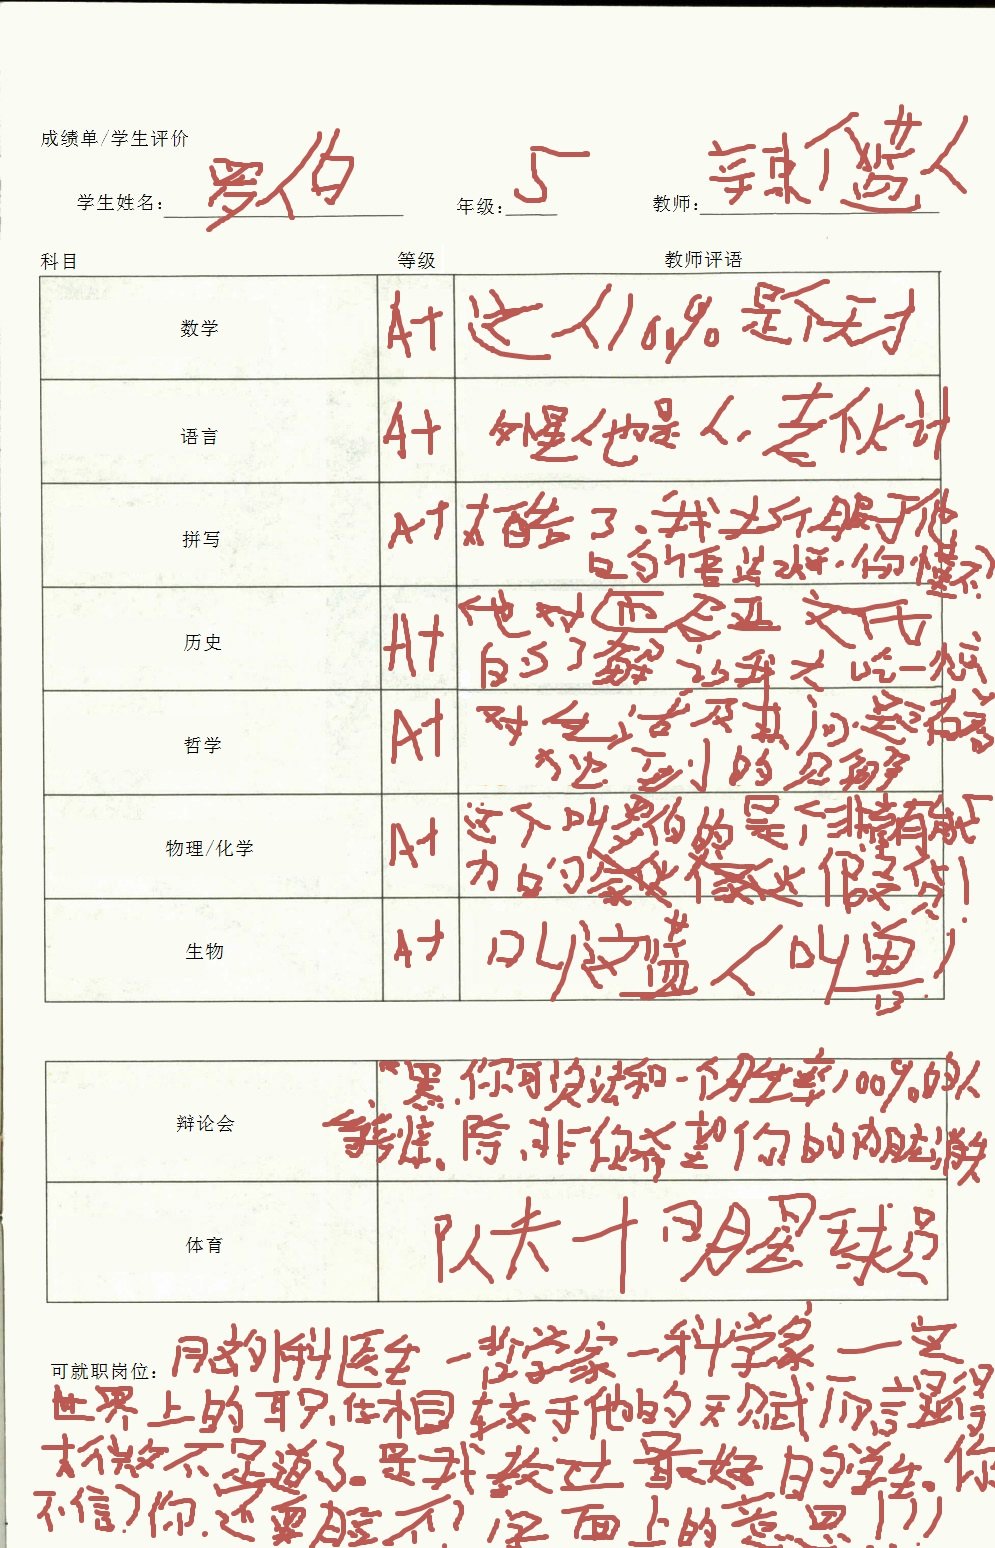 成绩单/学生评价
学生姓名: 罗人白 年级: 5 教师: 辣个蓝人
科目 等级 教师评语
数学 A+ 这人100%是个天才
语言 A+ 外星人也是人,老伙计
拼写 A+ 太酷了.我去个服于他
的语法水平.你懂不?
历史 A+ 他对西尼亚文化
的了解让我大吃一惊
哲学 A+ 对生活及其问题有
独到的见解
物理/化学 A+ 这个叫罗伯的是个非常有能
力的家伙 家伙 假了你!
生物 A+ 叫这蓝人叫单!
辩论会 "黑,你可没法和一个胜率100%的人
转炷,除非你希望你的脑溢散
体育 队夫一个明星球员
可就职岗位: 脑科医生-哲学家-科学家-一一
世界上的职位相较于他的天赋而言显得
太微不足道了.是我教过最好的学生.你
不信?你.还要脸不?字面上的意思!!)